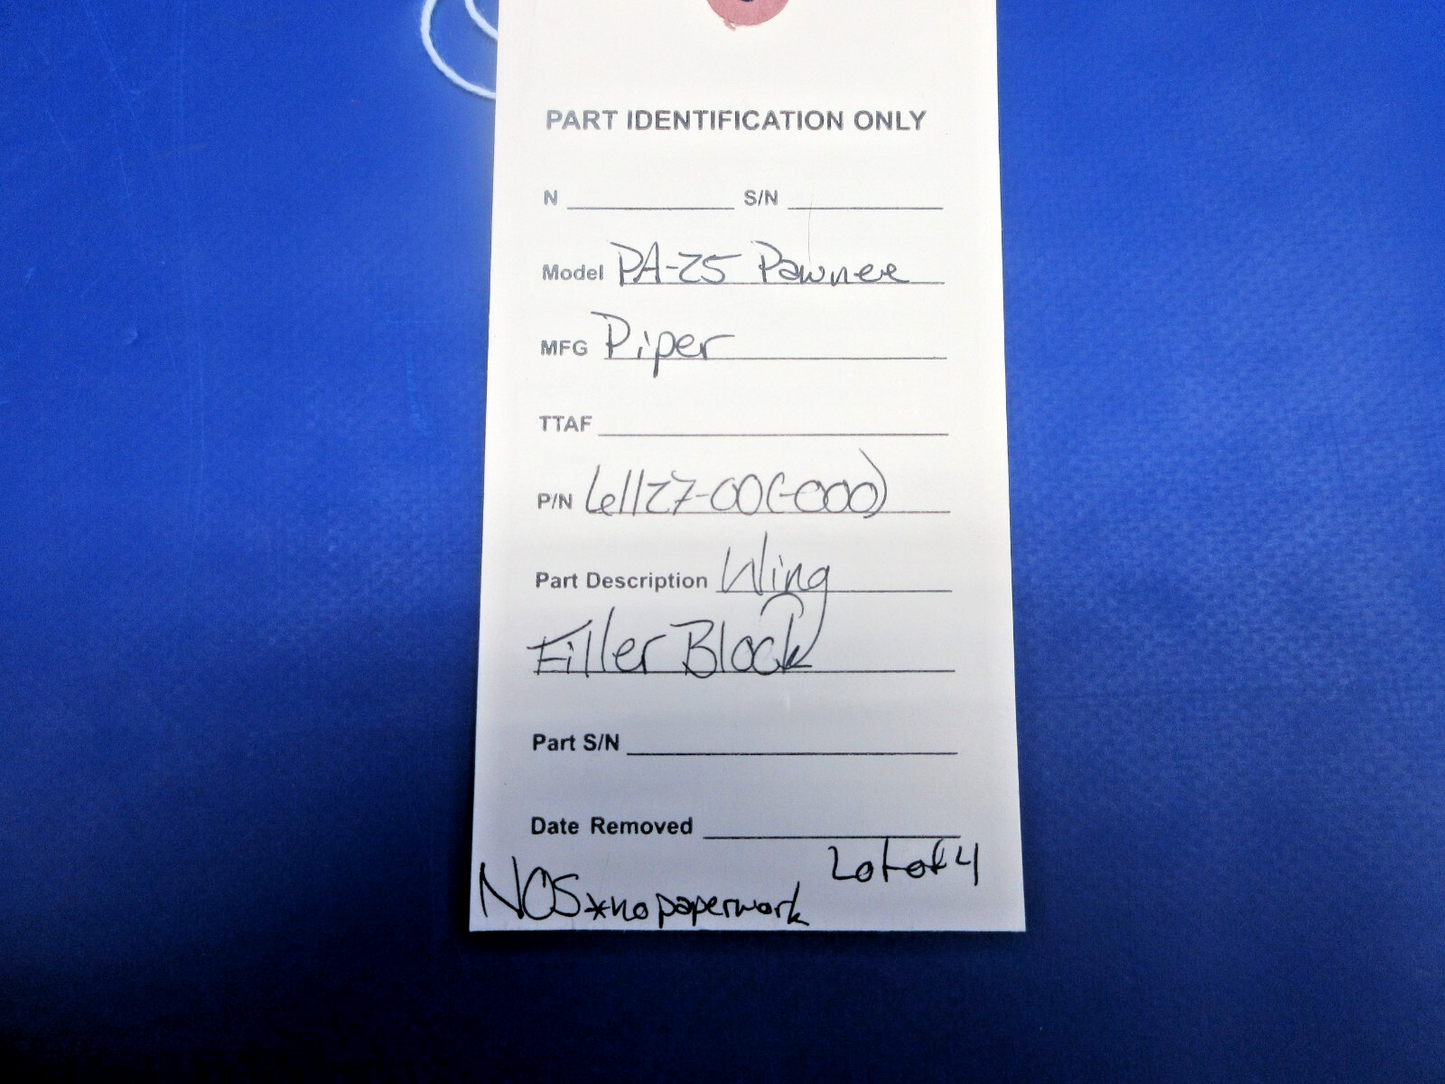 PART IDENTIFICATION ONLY
N S/N
Model PA-25 Pawnee
MFG Piper
TTAF
P/N 61127-00(-000)
Part Description Wing
Filler Block
Part S/N
Date Removed
Lot of 4
NOS *no paperwork